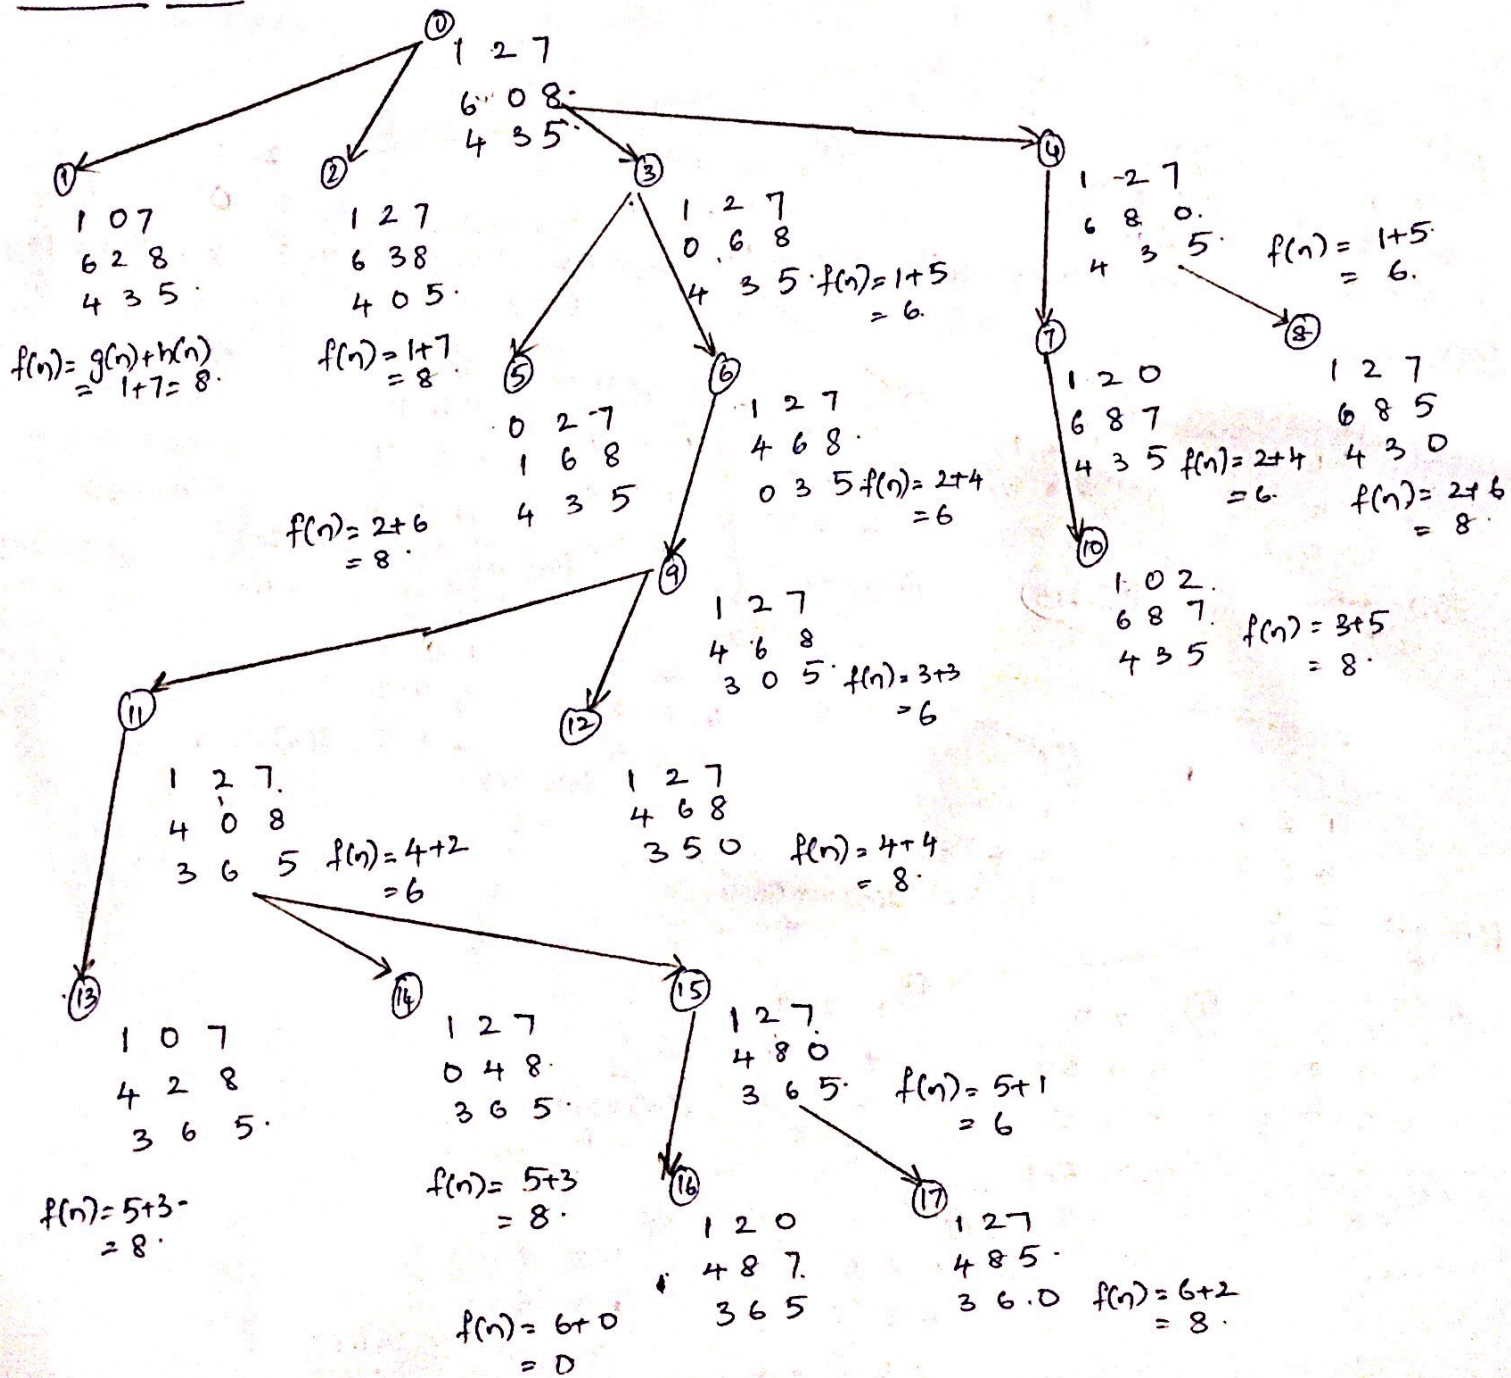 0
1 2 7
6 0 8
4 3 5
1
1 0 7
6 2 8
4 3 5
f(n) = g(n)+h(n)
= 1+7 = 8.
2
1 2 7
6 3 8
4 0 5
f(n) = 1+7
= 8
3
1 2 7
0 6 8
4 3 5 f(n) = 1+5
= 6.
4
1 2 7
6 8 0
4 3 5
f(n) = 1+5
= 6.
5
0 2 7
1 6 8
4 3 5
f(n) = 2+6
= 8.
6
1 2 7
4 6 8
0 3 5 f(n) = 2+4
= 6
7
1 2 0
6 8 7
4 3 5 f(n) = 2+4
= 6.
8
1 2 7
6 8 5
4 3 0
f(n) = 2+6
= 8.
9
1 2 7
4 6 8
3 0 5 f(n) = 3+3
= 6
10
1 0 2
6 8 7
4 3 5
f(n) = 3+5
= 8.
11
1 2 7
4 0 8
3 6 5 f(n) = 4+2
= 6
12
1 2 7
4 6 8
3 5 0 f(n) = 4+4
= 8.
13
1 0 7
4 2 8
3 6 5
f(n) = 5+3
= 8.
14
1 2 7
0 4 8
3 6 5
f(n) = 5+3
= 8.
15
1 2 7
4 8 0
3 6 5
f(n) = 5+1
= 6
16
1 2 0
4 8 7
3 6 5
f(n) = 6+0
= 0
17
1 2 7
4 8 5
3 6 0 f(n) = 6+2
= 8.